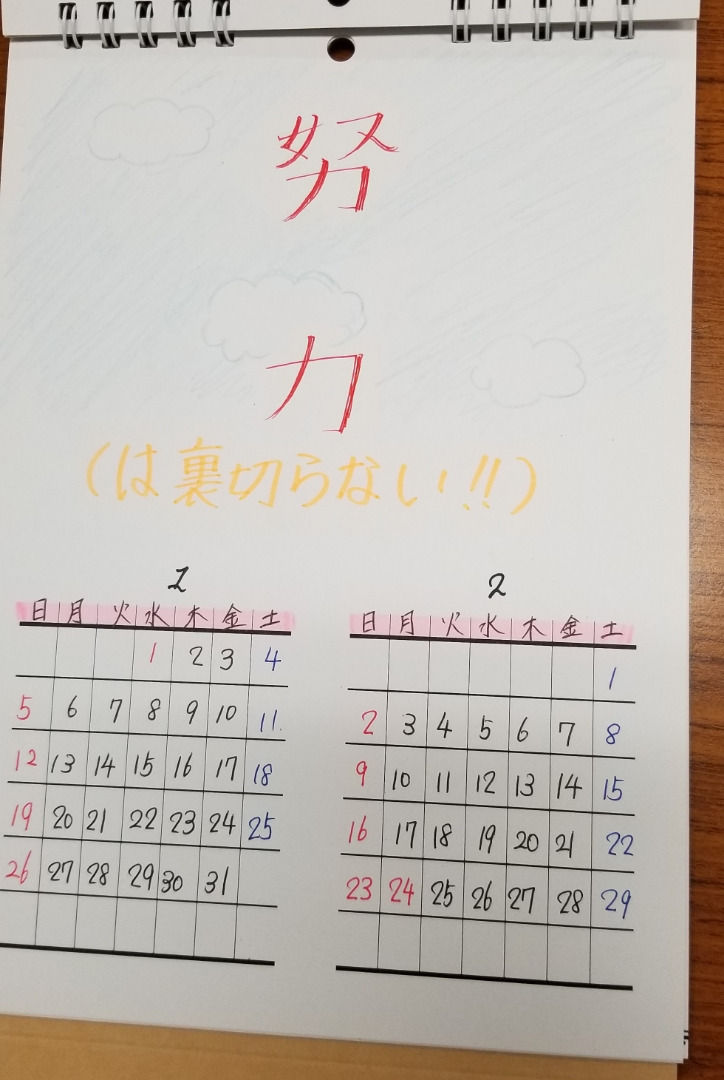 努
力
(は裏切らない!!)
1
日 月 火 水 木 金 土
1 2 3 4
5 6 7 8 9 10 11
12 13 14 15 16 17 18
19 20 21 22 23 24 25
26 27 28 29 30 31
2
日 月 火 水 木 金 土
1
2 3 4 5 6 7 8
9 10 11 12 13 14 15
16 17 18 19 20 21 22
23 24 25 26 27 28 29